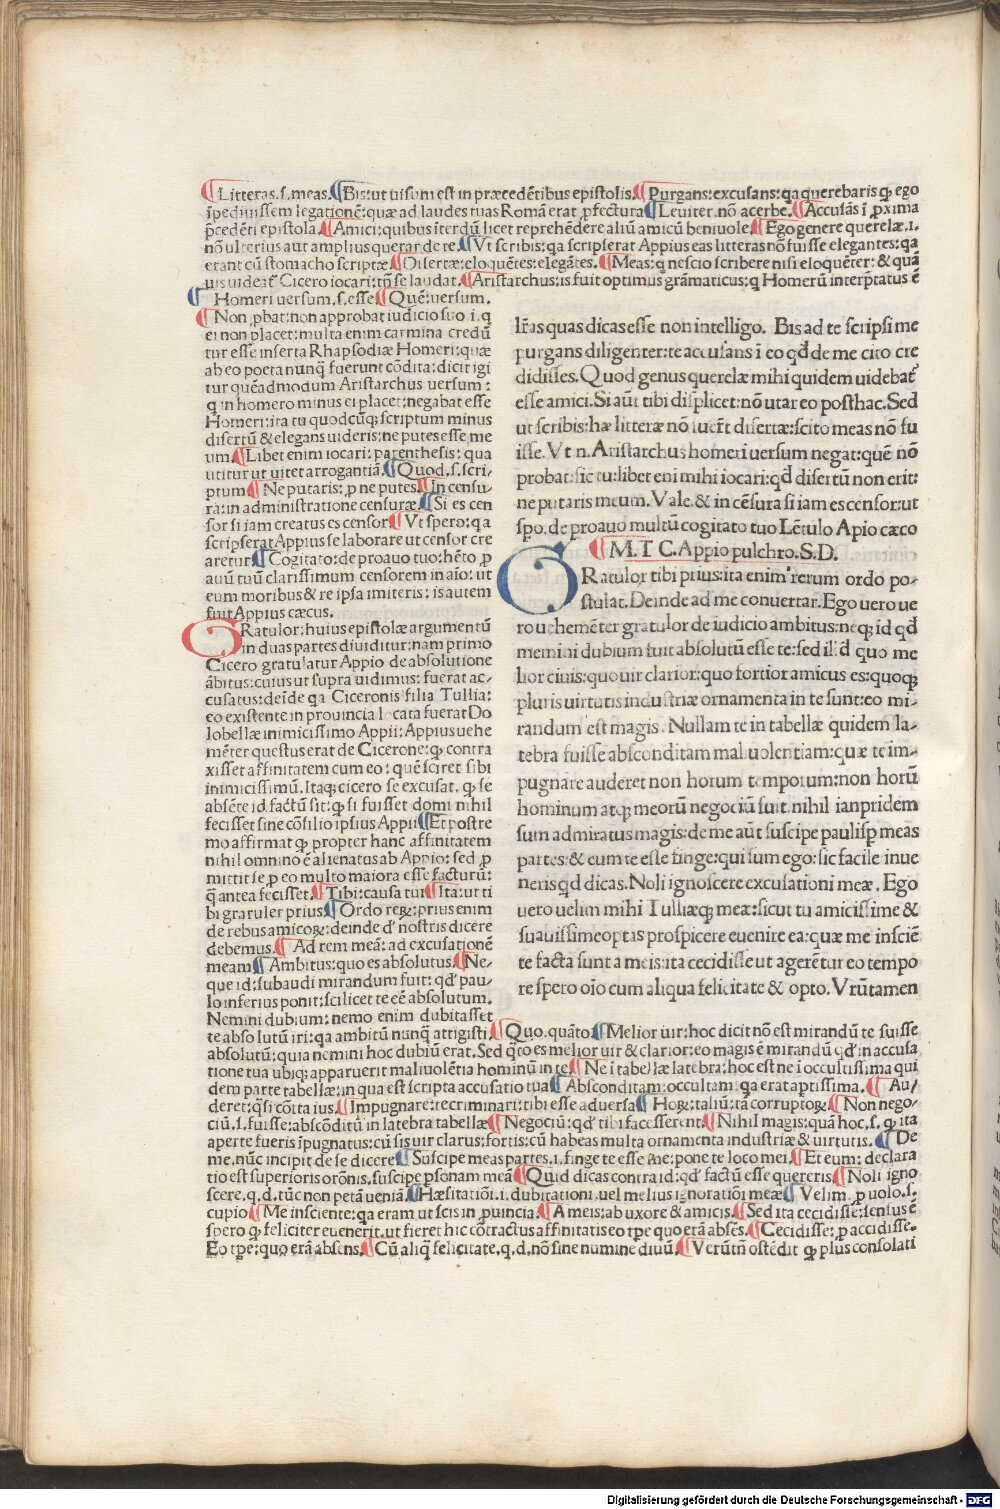 ¶Litteras.ſ.meas.¶Bis:ut uiſum eſt in præcedẽtibus epiſtolis.¶Purgans:excuſans:qa querebaris ꝙ ego
ĩpediuiſſem legationẽ:quæ ad laudes tuas Romã erat ꝓfectura¶Leuiter.nõ acerbe.¶Accuſãs ĩ ꝓxima
p̃cedẽti epiſtola.¶Amici:quibus ĩterdũ licet reprehẽdere aliũ amicũ beniuole.¶Ego genere querelæ.i.
nõ ulterius aut amplius querar de re.¶Vt ſcribis:qa ſcripſerat Appius eas litteras nõ fuiſſe elegantes:qa
erant cũ ſtomacho ſcriptæ¶Diſertæ:eloquẽtes:elegãtes.¶Meas:q neſcio ſcribere niſi eloquẽter:& quã
uis uideat᷑ Cicero iocari:tñ ſe laudat.¶Ariſtarchus:is fuit optimus grãmaticus:q Homerũ interp̃tatus ẽ
¶ Homeri uerſum.ſ.eſſe¶Quẽ:uerſum.
¶Non ꝓbat:non approbat iudicio ſuo i.q
ei non placet:multa enim carmina credũ
tur eſſe inſerta Rhapſodiæ Homeri:quæ
ab eo poeta nunq̃ fuerunt cõdita:dicit igi
tur quẽadmodum Ariſtarchus uerſum:
q in homero minus ei placet:negabat eſſe
Homeri:ita tu quodcũq; ſcriptum minus
diſertũ & elegans uideris:ne putes eſſe me
um.¶Libet enim iocari:parentheſis:qua
utitur ut uitet arrogantiã.¶Quod.ſ.ſcri-
ptum¶Ne putaris:ꝓ ne putes.¶In cenſu-
ra:in adminiſtratione cenſuræ.¶Si es cen
ſor ſi iam creatus es cenſor¶Vt ſpero:qa
ſcripſerat Appius ſe laborare ut cenſor cre
aretur¶Cogitato:de proauo tuo:hẽto ꝓ
auũ tuũ clariſſimum cenſorem in aĩo:ut
eum moribus & re ipſa imiteris:is autem
fuit Appius cæcus.
GRatulor:huius epiſtolæ argumentũ
in duas partes diuiditur:nam primo
Cicero gratulatur Appio de abſolutione
ãbitus:cuius ut ſupra uidimus:fuerat ac-
cuſatus:deĩde qa Ciceronis filia Tullia:
eo exiſtente in prouincia l cata fuerat Do
lobellæ inimiciſſimo Appii:Appius uehe
mẽter queſtus erat de Cicerone:ꝙ contra
xiſſet affinitatem cum eo:quẽ ſciret ſibi
inimiciſſimũ.Itaq;cicero ſe excuſat.ꝙ ſe
abſẽte id factũ ſit:ꝙ ſi fuiſſet domi nihil
feciſſet ſine cõſilio ipſius Appii¶Et poſtre
mo affirmat ꝙ propter hanc affinitatem
nihil omnino ẽ alienatus ab Appio:ſed ꝓ
mittit ſe ꝓ eo multo maiora eſſe facturũ:
q̃ antea feciſſet.¶Tibi:cauſa tui¶Ita:ut ti
bi gratuler prius.¶Ordo reꝝ:prius enim
de rebus amicoꝝ:deinde d' noſtris dicere
debemus.¶ Ad rem meã:ad excuſationẽ
meam¶Ambitus:quo es abſolutus.¶Ne-
que id:ſubaudi mirandum fuit:qd' pau-
lo inferius ponit:ſcilicet te eẽ abſolutum.
Nemini dubium:nemo enim dubitaſſet
te abſolutũ iri:qa ambitũ nunq̃ attigiſti.¶Quo.quãto.¶Melior uir:hoc dicit nõ eſt mirandũ te fuiſſe
abſolutũ:quia nemini hoc dubiũ erat.Sed q̃to es melior uir & clarior:eo magis ẽ mirandũ qd' in accuſa
tione tua ubiq; apparuerit maliuolẽtia hominũ in te¶Ne ĩ tabellæ latebra:hoc eſt ne ĩ occultiſſima qui
dem parte tabellæ:in qua eſt ſcripta accuſatio tua¶Abſconditam:occultam:qa erat aptiſſima.¶ Au/
deret:q̃ſi cõtta ius.¶Impugnare:recriminari:tibi eſſe aduerſa¶ Hoꝝ:taliũ:tã corruptoꝝ¶Non nego/
ciũ.ſ.fuiſſe:abſcõditũ in latebra tabellæ¶Negociũ:qd' tibi faceſſerent.¶Nihil magis:quã hoc.ſ.ꝙ ita
aperte fueris ĩpugnatus:cũ ſis uir clarus:fortis:cũ habeas multa ornamenta induſtriæ & uirtutis.¶De
me.nũc incipit de ſe dicere¶Suſcipe meas partes.i.finge te eſſe me:pone te loco mei.¶Et eum:declara
tio eſt ſuperioris orõnis.ſuſcipe pſonam meã¶Quid dicas contra id:qd' factũ eſſe quereris.¶Noli igno
ſcere.q.d.tũc non petã ueniã.¶Hæſitatiõi.i.dubitationi.uel melius ignoratiõi meæ¶Velim.ꝓ uolo.ſ.
cupio¶Me inſciente:qa eram ut ſcis in ꝓuincia.¶A meis:ab uxore & amicis.¶Sed ita cecidiſſe:ſenſus ẽ
ſpero ꝙ feliciter euenerit.ut fieret hic cõtractus affinitatis eo tpe quo erã abſẽs.¶Cecidiſſe:ꝓ accidiſſe.
Eo tpe:quo erã abſens.¶Cũ aliq̃ felicitate.q.d.nõ ſine numine diuũ.¶Verũtñ oſtẽdit ꝙ plus conſolati
lr̃as quas dicas eſſe non intelligo. Bis ad te ſcripſi me
purgans diligenter:te accuſans ĩ eo qd' de me cito cre
didiſſes.Quod genus querelæ mihi quidem uidebat᷑
eſſe amici.Si aũt tibi diſplicet:nõ utar eo poſthac.Sed
ut ſcribis:hæ litteræ nõ fuer̃t diſertæ:ſcito meas nõ fu
iſſe.Vt n.Ariſtarchus homeri uerſum negat:quẽ nõ
probat:ſic tu:libet eni mihi iocari:qd' diſertũ non erit:
ne putaris meum.Vale.& in cẽſura ſi iam es cenſor:ut
ſpo.de proauo multũ cogitato tuo Lẽtulo Apio cæco
¶M.T C.Appio pulchro.S.D.
GRatulor tibi prius:ita enim rerum ordo po-
ſtulat.Deinde ad me conuertar.Ego uero ue
ro uehemẽter gratulor de iudicio ambitus:neq; id qd'
memini dubium fuit abſolutũ eſſe te:ſed illd quo me
lior ciuis:quo uir clarior:quo fortior amicus es:quoq;
pluris uirtutis induſtriæ ornamenta in te ſunt:eo mi-
randum eſt magis. Nullam te in tabellæ quidem la-
tebra fuiſſe abſconditam maliuolentiam:quæ te im-
pugnare auderet non horum temporum:non horũ
hominum atq; meorũ negociũ fuit.nihil ianpridem
ſum admiratus magis:de me aũt ſuſcipe pauliſp meas
partes:& eum te eſſe finge:qui ſum ego:ſic facile inue
neris qd' dicas.Noli ignoſcere excuſationi meæ. Ego
uero uelim mihi Tulliæq; meæ:ſicut tu amiciſſime &
ſuauiſſime optas proſpicere euenire ea:quæ me inſciẽ
te facta ſunt a meis:ita cecidiſſe ut agerẽtur eo tempo
re ſpero oĩo cum aliqua felicitate & opto. Verũtamen
Digitalisierung gefördert durch die Deutsche Forschungsgemeinschaft - DFG